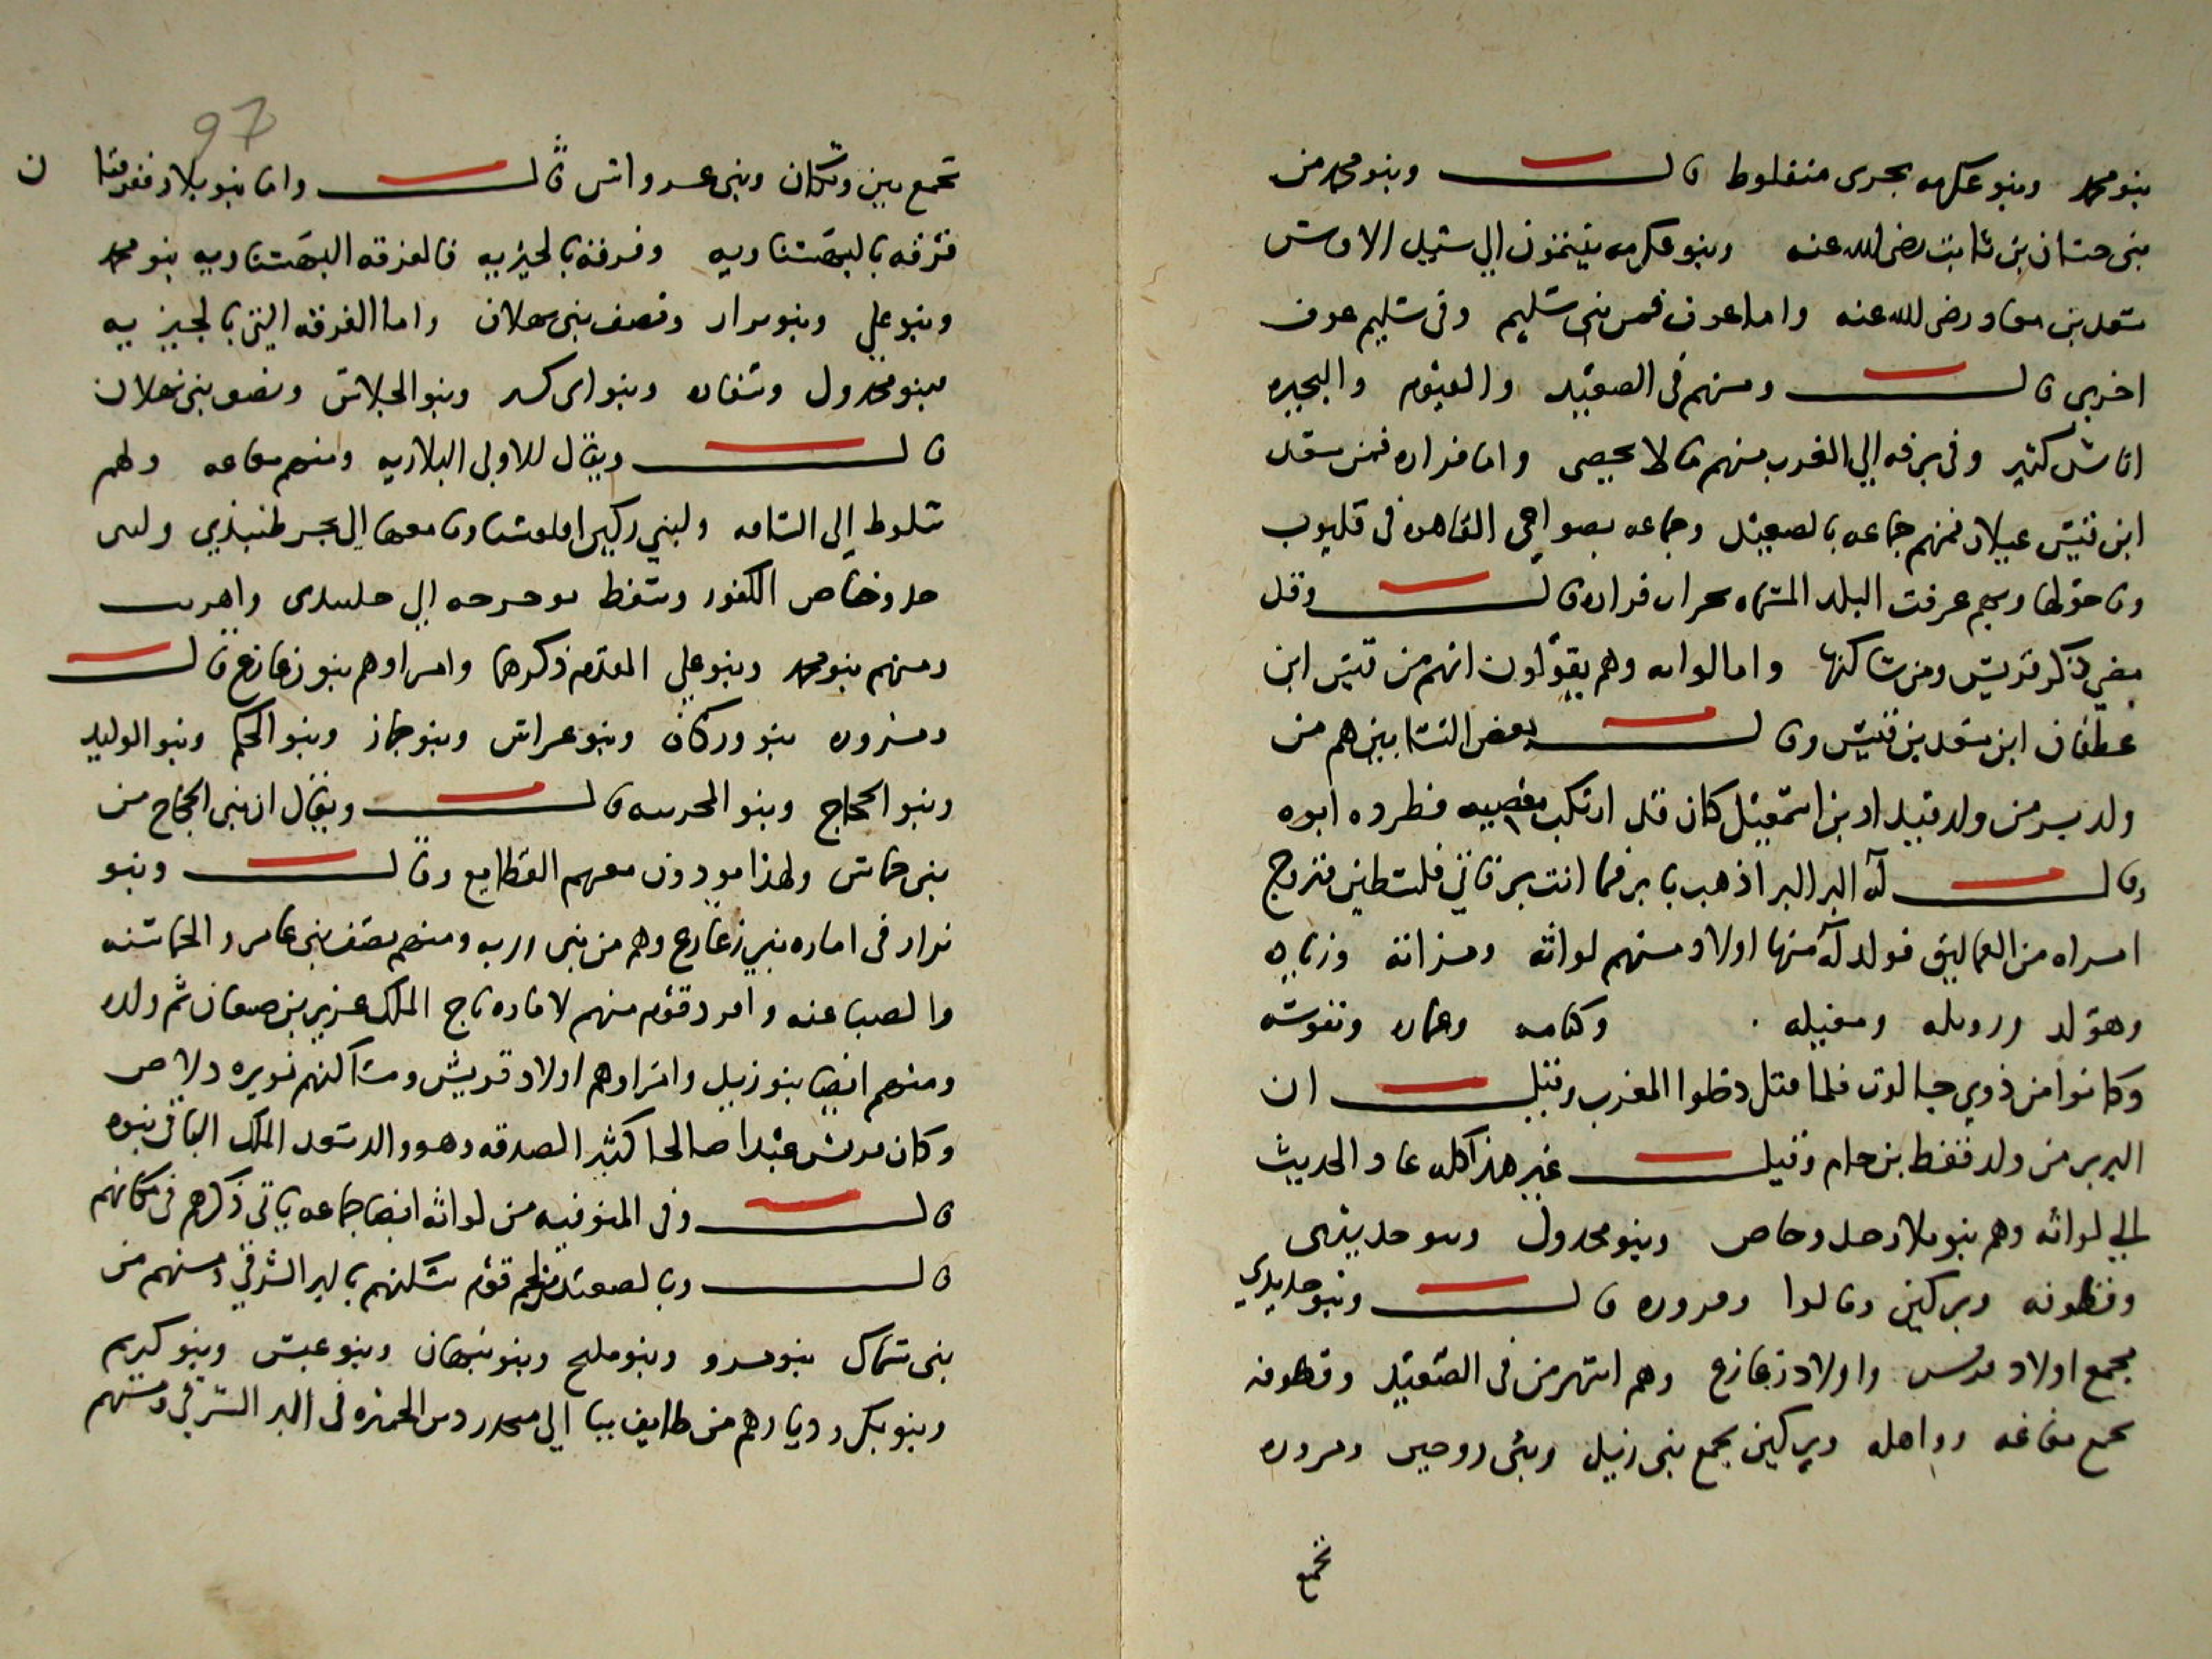 بنو محمد وبنو عكرمه بحرى منفلوط قال وبنو محمد من
بنى حسان بن ثابت رضى الله عنه وبنو عكرمه ينتمون الي سيد الاوس
سعد بن معاد رضى الله عنه واما عوف فمن بنى سليم وفى سليم عوف
اخرى قال ومنهم فى الصعيد والفيوم والبحيره
اناس كثير وفى برقه الي الغرب منهم ما لا يحصى واما فزاره فمن سعد
ابن قيس عيلان فمنهم جماعه بالصعيد وجماعه بضواحى القاهره فى قليوب
وما حولها وبهم عرفت البلد المسماه بخراب فزاره قال وقد
مضي ذكر قريش ومن ساكنها واما لواته وهم يقولون انهم من قيس ابن
غطفان ابن سعد بن قيس وقال بعض النسابين هم من
ولد بر من ولد قيدار بن اسمعيل كان قد ارتكب معصيه فطرده ابوه
وقال له البر البر اذهب يا بر فما انت بر فاتي فلسطين فتزوج
امراه من العماليق فولد له منها اولاد منهم لواته ومزاته وزناره
وهو لد وروىله ومغيله وكتامه وغماره ونفوسه
وكانوا من ذوي جالوت فلما قتل دخلوا المغرب وقيل ان
البربر من ولد قفط بن حام وقيل غير هذا كله عاد الحديث
الي لواته وهم بنو بلار حد وخاص وبنو مجدول وبنو حديدى
وقطوفه وبركين ومالوا ومزوره قال وبنو حديدي
تجمع اولاد قريش واولاد زعازع وهم اشهر من فى الصعيد وقطوفه
تجمع مغاغه وواهله وبركين تجمع بنى زيد وبنى روحين ومزوره
تجمع
97
تجمع بين وركان وبنى غرواس قال واما بنو بلار ففرقتان
فرقه بالبهنساويه وفرقه بالجيزيه فالفرقه البهنساويه بنو محمد
وبنو علي وبنو نزار ونصف بنى شهلان واما الفرقه التى بالجيزيه
فبنو مجدول وسقاره وبنو ابى كسر وبنو الجلاس ونصف بنى شهلان
قال ويقال للاولى البلاريه ومنهم مغاغه ولهم
سلوط إلى الساقه ولبني بركين اقلوسنا وما معها الى بحر طنبدي ولبنى
حد وخاص الكفور وسفط بوجرجه الي طنبدى واهريت
ومنهم بنو محمد وبنو علي المقدم ذكرهما وامراوهم بنو زعازع قال
ومزوره بنو وركان وبنو عراس وبنو جماز وبنو الحكم وبنو الوليد
وبنو الحجاج وبنو المحربيه قال ويقال ان بنى الحجاج من
بنى حماس ولهذا يودون معهم القطايع وقال وبنو
نزار فى اماره بنى زعازع وهم من بنى زربه ومنهم نصف بنى عامر والحماسنه
والضباعنه وافرد قوم منهم لاماره تاج الملك عزيز بن ضبعان ثم ولده
ومنهم ايضا بنو زيد وامراوهم اولاد قريش ومساكنهم نويره دلاص
وكان قريش عبدا صالحا كثير الصدقه وهو والد سعد الملك الباقى بنوه
قال وفى المنوفيه من لواته ايضا جماعه ياتى ذكرهم فى مكانهم
قال وبالصعيد من لخم قوم مسكنهم بالبر الشرقى ومنهم من
بنى سماك بنو مر وبنو مليح وبنو نبهان وبنو عبس وبنو كريم
وبنو بكر وديارهم من طارف ببا الي منحدر دير الجميزه فى البر الشرقى ومنهم